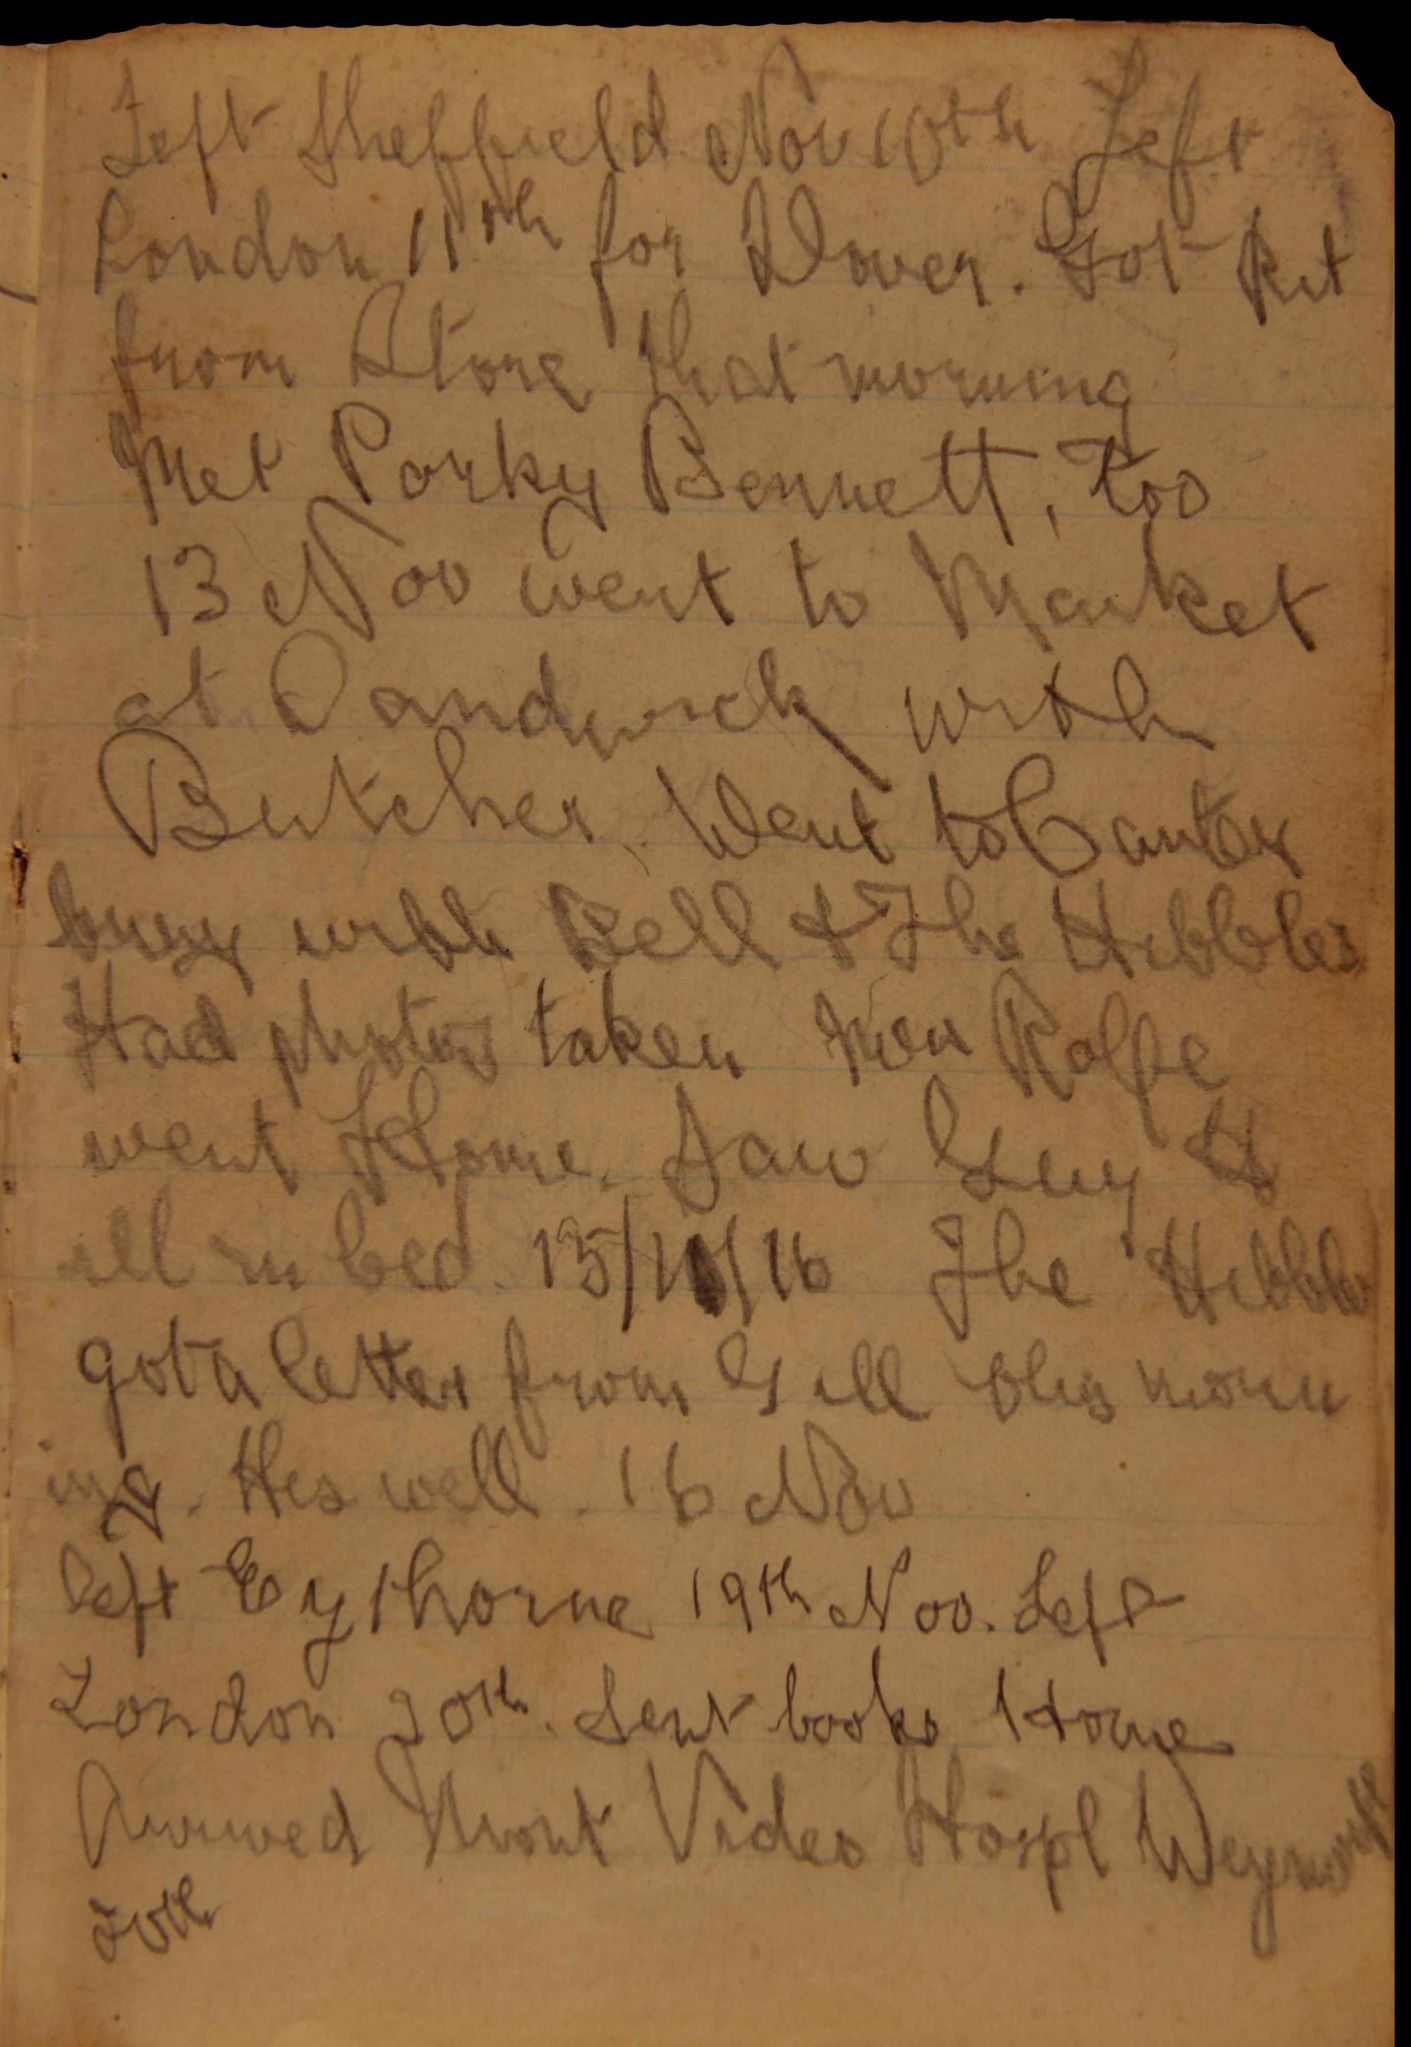 Left Sheffield Nov 10th Left
London 11th for Dover. Got Kit
from Store that morning
Met Porky Bennett, too
13 Nov went to Market
at Sandwick with
Butcher. Went to Canter
bury with Bell & The Hibbles
Had photos taken Rolfe
went Home. Saw Guy
ill in bed. 15/11/16 The Hibble
got a letter from Gill this morn
ing. Hes well. 16 Nov
left Eythorne 19th Nov. Left
London 20th. Sent books Home
Arrived Mont Video Hospl Weymouth
20th